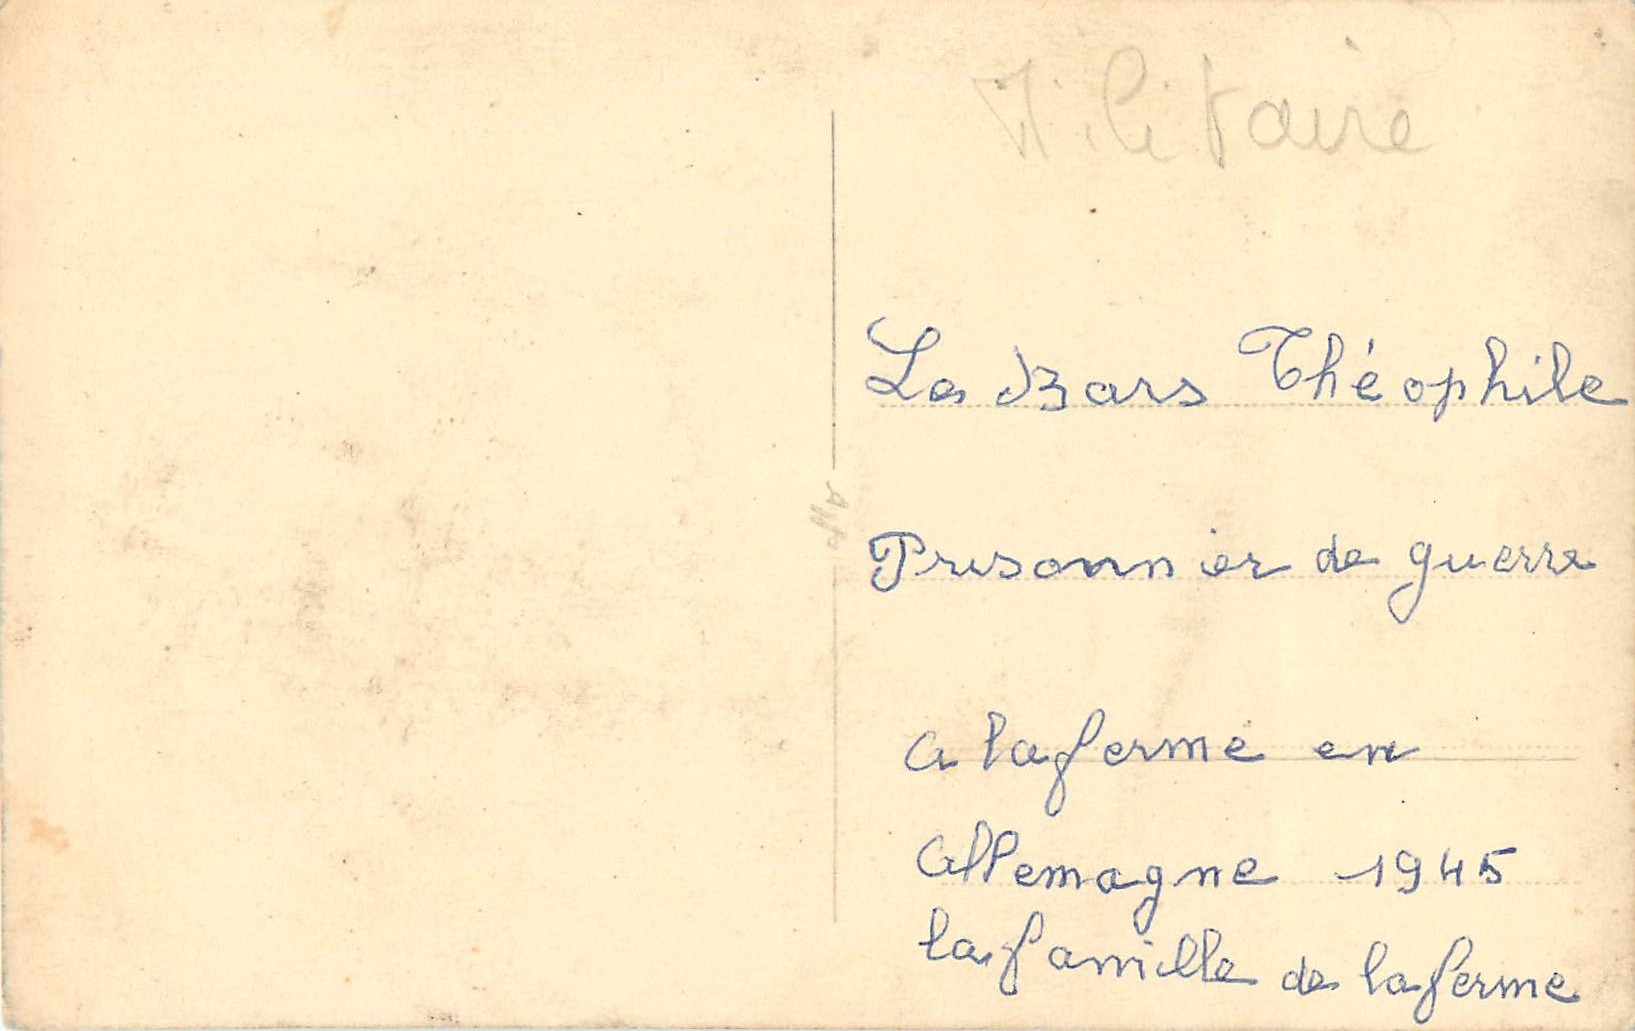 Militaire
Le Bars Théophile
Prisonnier de guerre
a la ferme en
allemagne 1945
la famille de la ferme